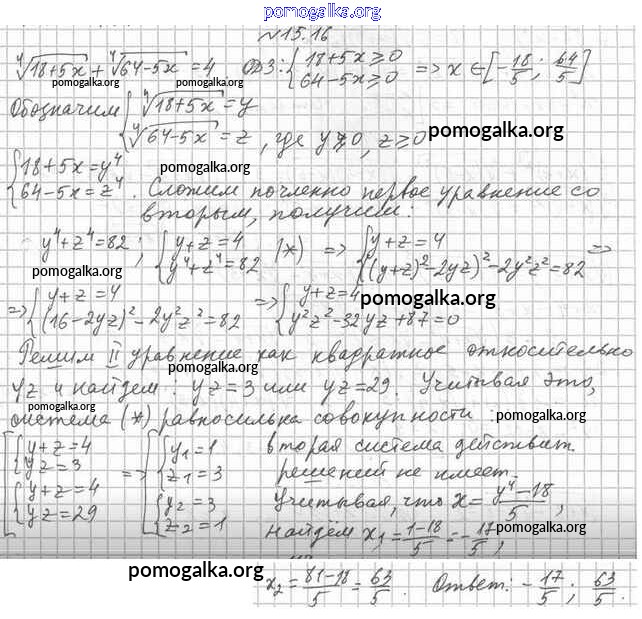 pomogalka.org
№15.16
∜(18+5x) + ∜(64-5x) = 4 ОДЗ: {18+5x≥0 {64-5x≥0 => x∈[-18/5; 64/5]
pomogalka.org pomogalka.org
Обозначим {∜(18+5x) = y
{∜(64-5x) = z, где y≥0, z≥0 pomogalka.org
{18+5x=y⁴ pomogalka.org
{64-5x=z⁴. Сложим почленно первое уравнение со
вторым, получим:
y⁴+z⁴=82; {y+z=4 {y⁴+z⁴=82 (*) => {y+z=4 {((y+z)²-2yz)²-2y²z²=82 =>
pomogalka.org
=> {y+z=4 {(16-2yz)²-2y²z²=82 => {y+z=4 {y²z²-32yz+87=0
pomogalka.org
Решим II уравнение как квадратное относительно
pomogalka.org pomogalka.org
yz и найдём: yz=3 или yz=29. Учитывая это,
pomogalka.org
система (*) равносильна совокупности:
pomogalka.org
[{y+z=4 {yz=3 => [{y₁=1 {z₁=3 вторая система действит.
решений не имеет.
pomogalka.org
[{y+z=4 {yz=29 [{y₂=3 {z₂=1 Учитывая, что x=(y⁴-18)/5,
найдём x₁=(1-18)/5=-17/5,
pomogalka.org
pomogalka.org
x₂=(81-18)/5=63/5. Ответ: -17/5; 63/5.
pomogalka.org